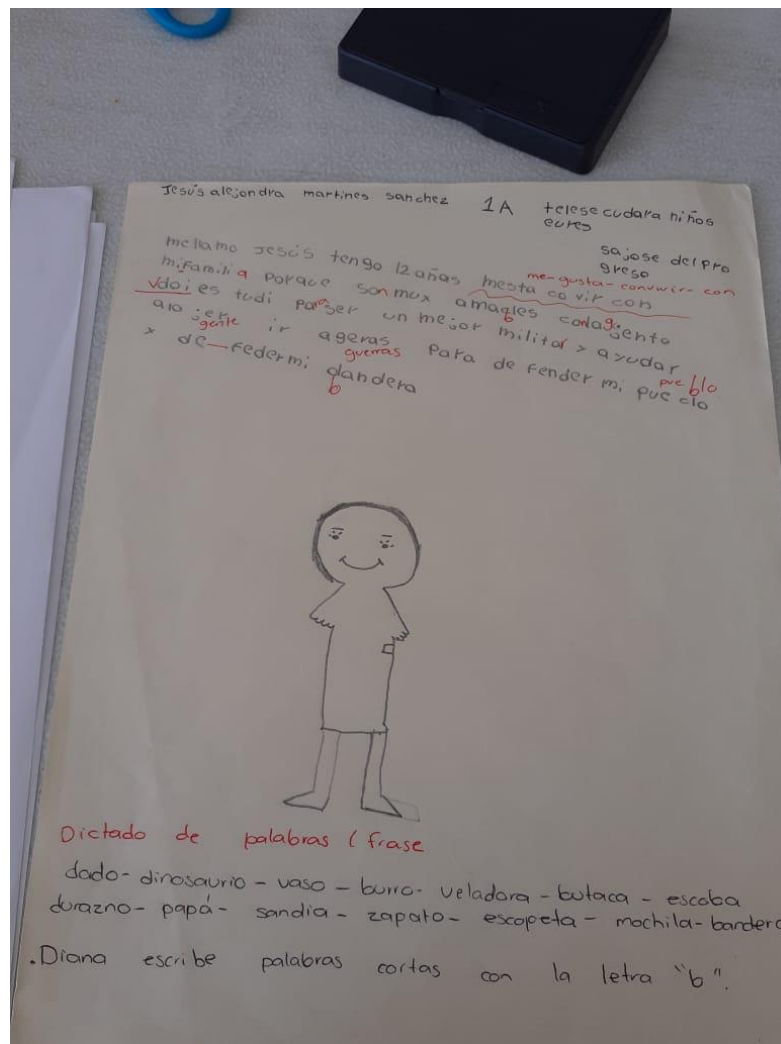 Jesús alejondra martines sanchez 1A telesecudara niños
eures
sajose delpro
greso
me-gusta-convivir-con
mellamo Jesús tengo 12 años mesta co vir con
mifamilia porque son mux amaqles codagento
b
vdoi es tudi parser un mejor militar > ayudar
ala jente ir ageras para de fender mi pue clo
gente guerras pueblo
x de-federmi dandera
b
Dictado de palabras ( frase
dado- dinosaurio - vaso - burro- veladora - butaca - escoba
durazno- papá- sandia - zapato- escopeta - mochila-bandera
.Diana escribe palabras cortas con la letra "b".